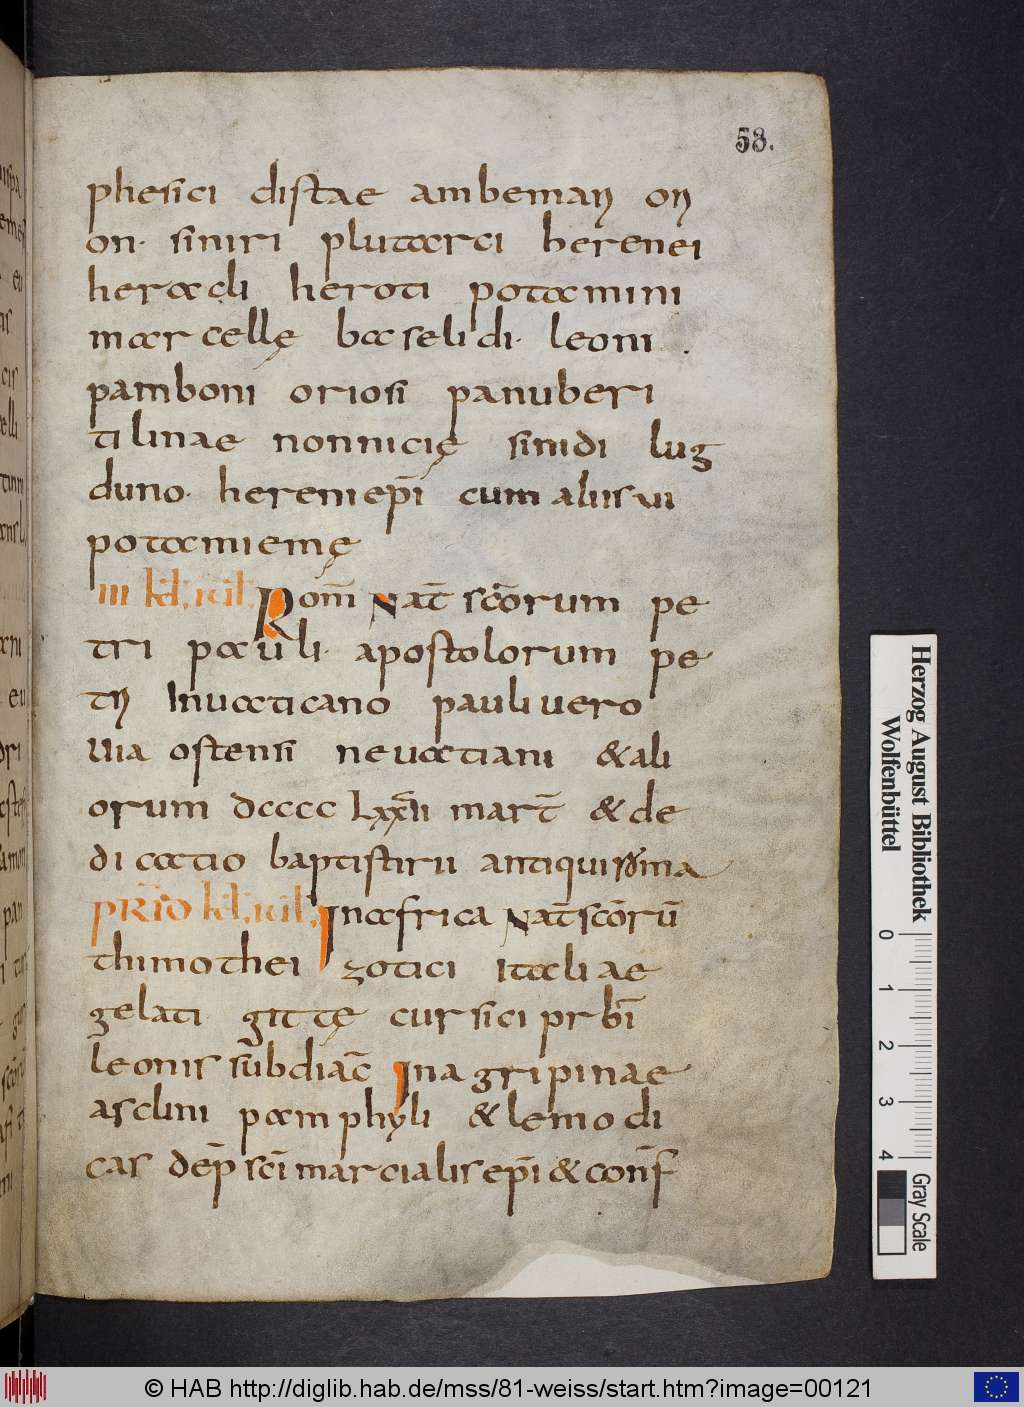 58.
phesici distae ambemarij orij
on· siniri plutarci herenei
heracli heroti potamini
marcellę baselidi· leoni .
pamboni oriosi panuberi
tilinae nonnicię sinidi lug
duno· hereni ep̄i cum aliis vi
potamiemę
III kł. iuł. Rom̄ Nat̄ sc̄orum pe
tri pauli· apostolorum pe
trij inuaticano pauli uero
uia ostensi neuatiani & ali
orum dcccc lxxvii mart̄ & de
dicatio baptistirii antiquissima
PRID kł. iuł. Inafrica Nat̄ sc̄orū
thimothei zotici italiae
gelati gittę cursici prb̄i
leonis subdiac̄ In agripinae
asclini pamphyli & lemodi
cas dep̄ sc̄i marcialis ep̄i & conf̄
Herzog August Bibliothek
Wolfenbüttel
0 1 2 3 4
Gray Scale
© HAB http://diglib.hab.de/mss/81-weiss/start.htm?image=00121